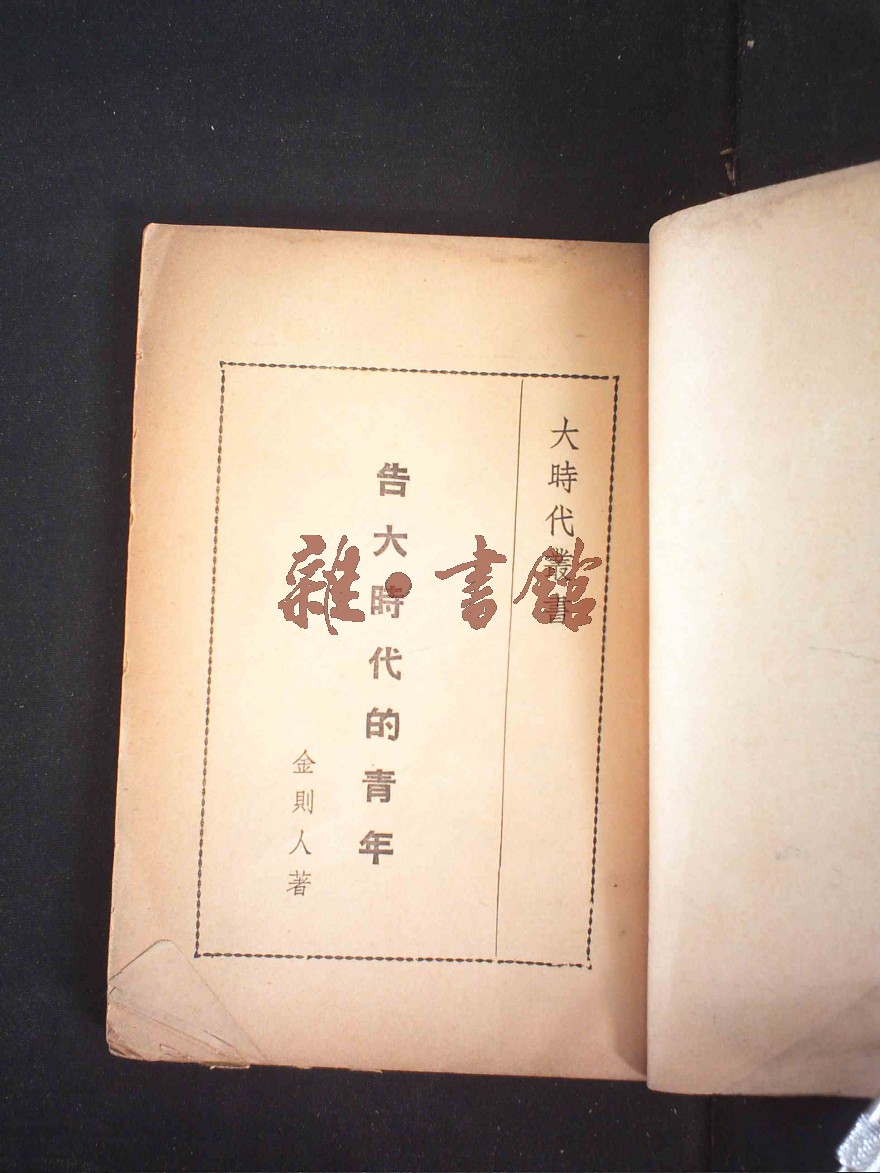 大時代叢書
告大時代的青年
金則人著
雜·書館